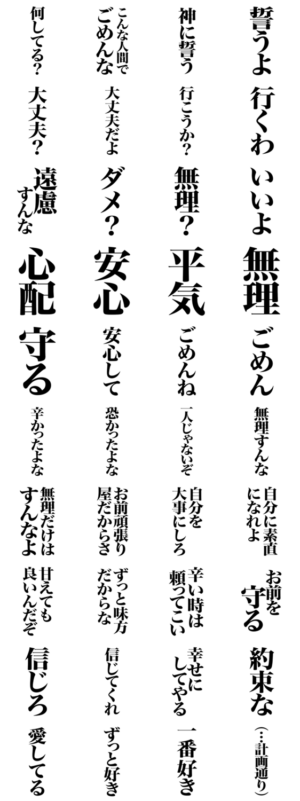 誓うよ
神に誓う
こんな人間で
ごめんな
何してる？
行くわ
行こうか？
大丈夫だよ
大丈夫？
いいよ
無理？
ダメ？
遠慮
すんな
無理
平気
安心
心配
ごめん
ごめんね
安心して
守る
無理すんな
一人じゃないぞ
恐かったよな
辛かったよな
自分に素直
になれよ
自分を
大事にしろ
お前頑張り
屋だからさ
無理だけは
すんなよ
お前を
守る
辛い時は
頼ってこい
ずっと味方
だからな
甘えても
良いんだぞ
約束な
幸せに
してやる
信じてくれ
信じろ
（…計画通り）
一番好き
ずっと好き
愛してる